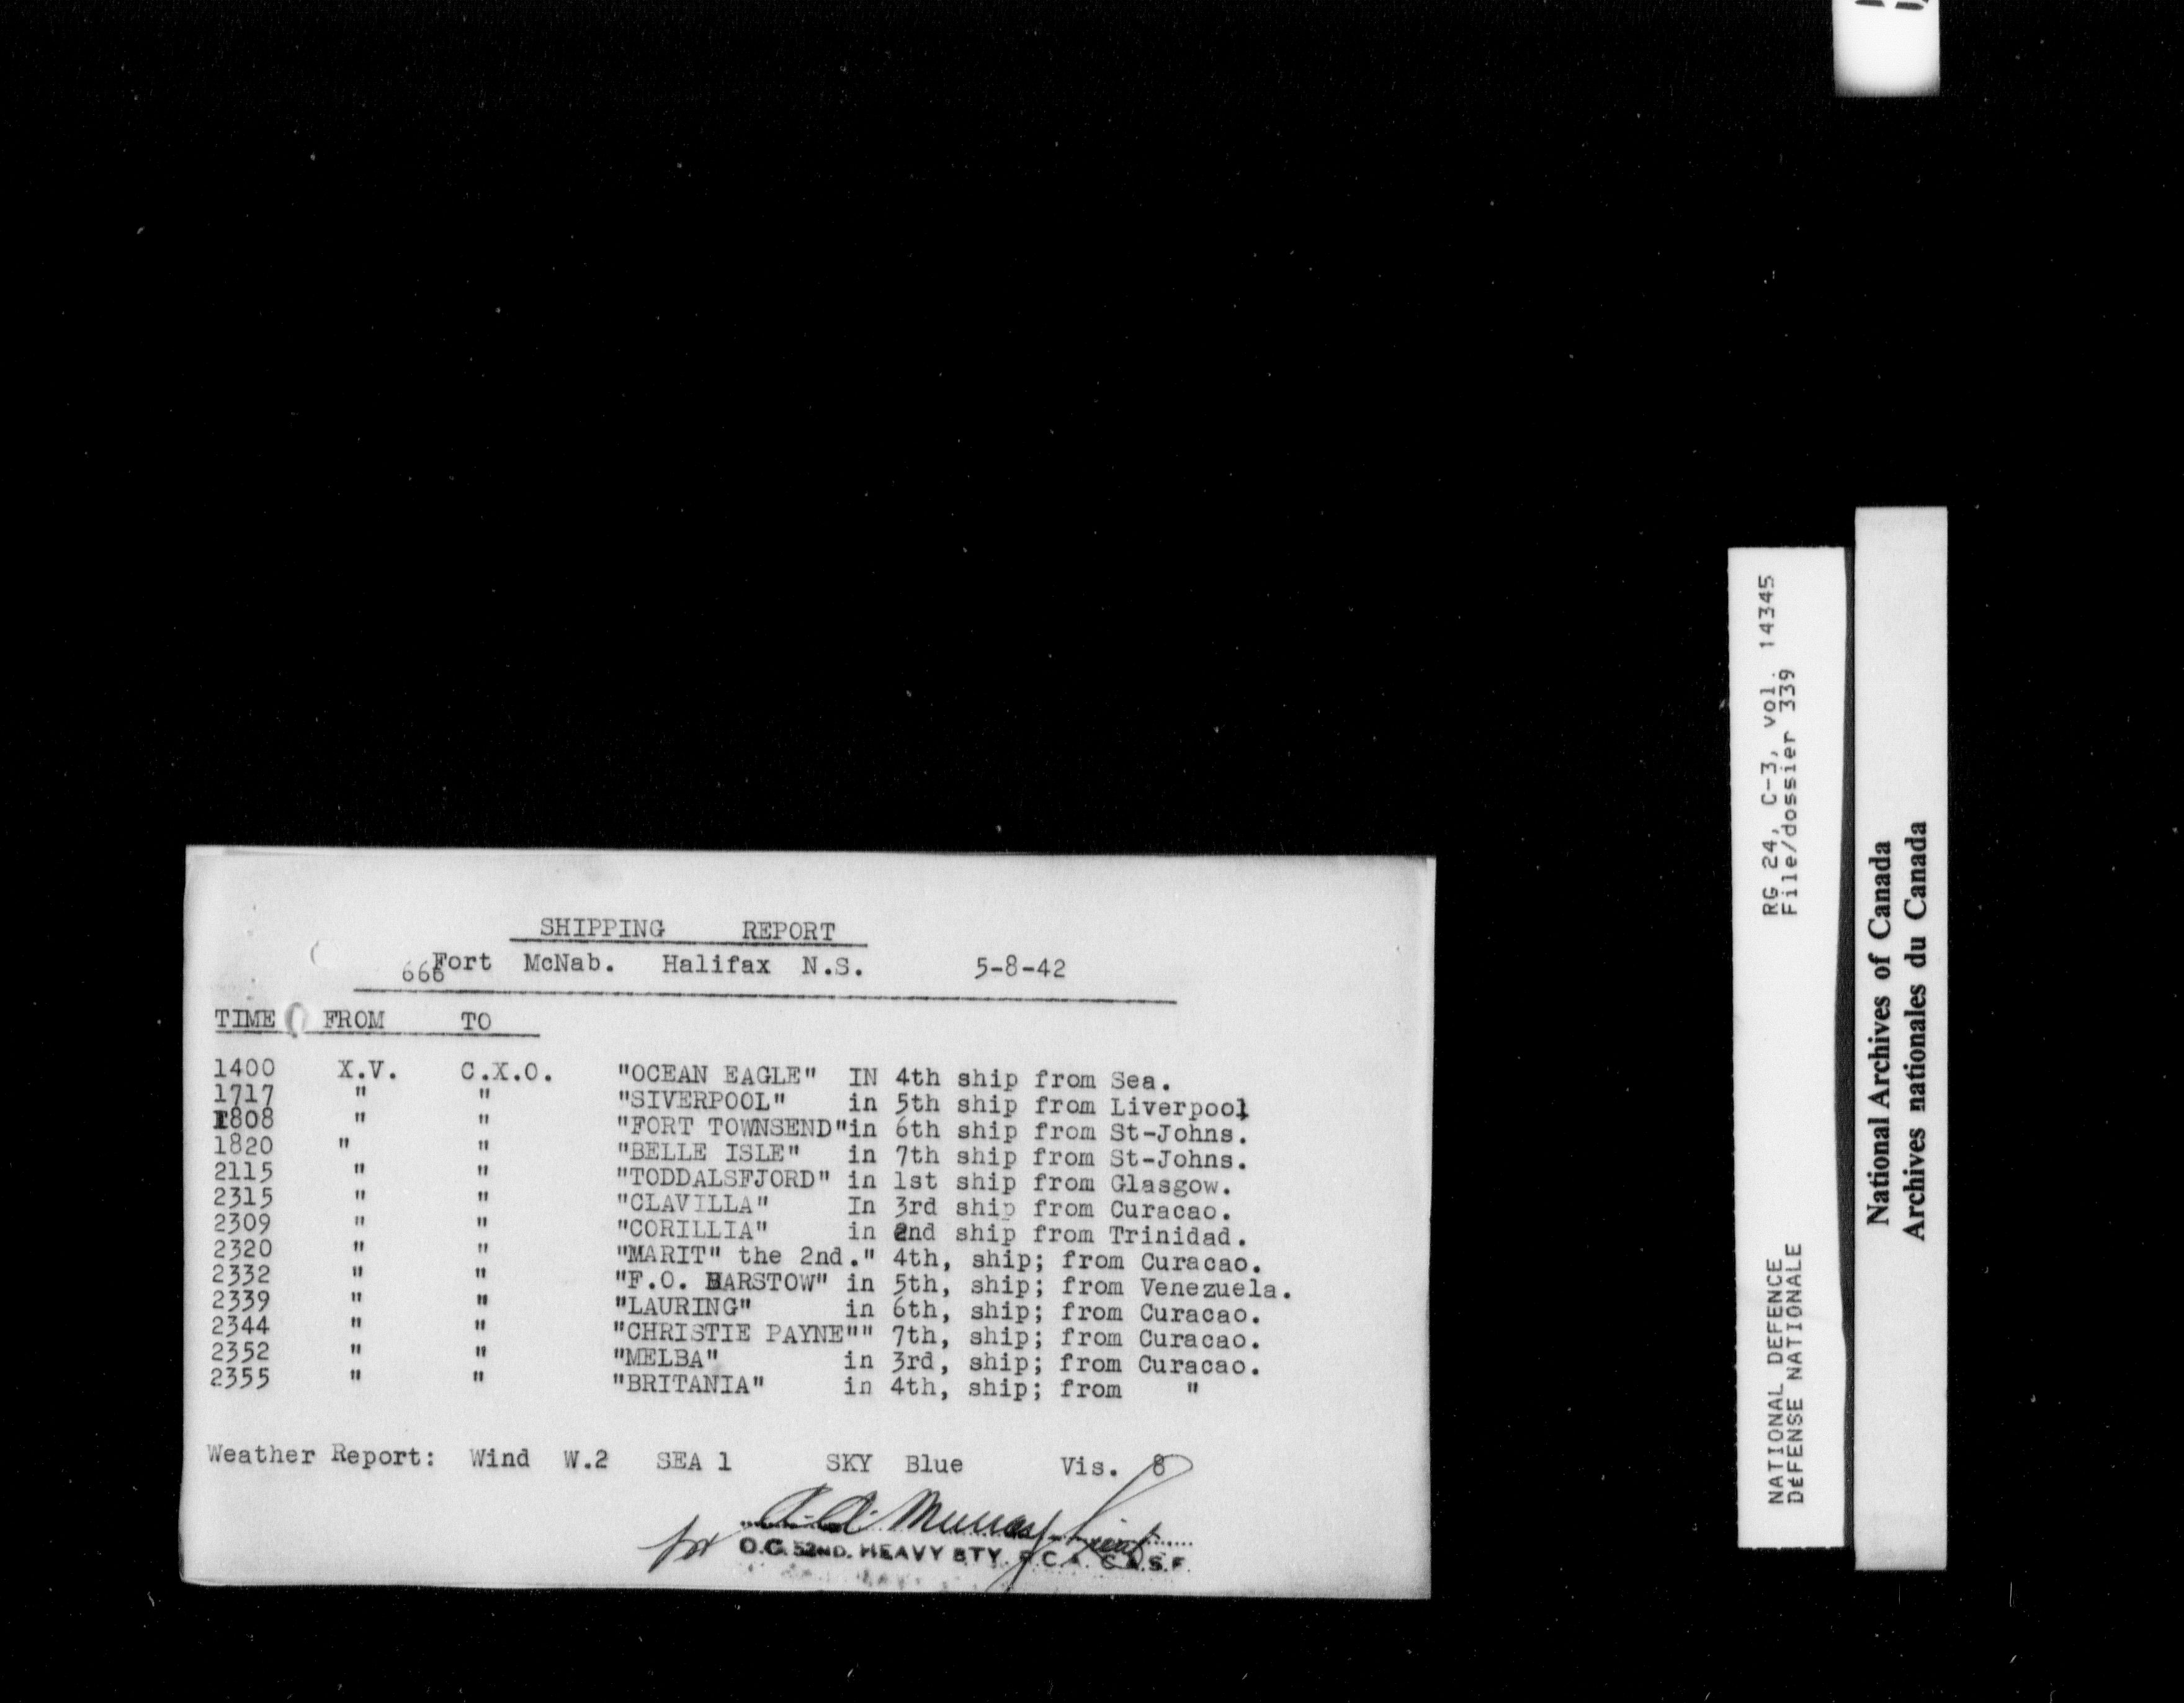 SHIPPING REPORT
666 Fort McNab. Halifax N.S. 5-8-42
TIME FROM TO
1400 X.V. C.X.O. "OCEAN EAGLE" IN 4th ship from Sea.
1717 " " "SIVERPOOL" in 5th ship from Liverpool
1808 " " "FORT TOWNSEND"in 6th ship from St-Johns.
1820 " " "BELLE ISLE" in 7th ship from St-Johns.
2115 " " "TODDALSFJORD" in 1st ship from Glasgow.
2315 " " "CLAVILLA" In 3rd ship from Curacao.
2309 " " "CORILLIA" in 2nd ship from Trinidad.
2320 " " "MARIT" the 2nd." 4th, ship; from Curacao.
2332 " " "F.O. BARSTOW" in 5th, ship; from Venezuela.
2339 " " "LAURING" in 6th, ship; from Curacao.
2344 " " "CHRISTIE PAYNE"" 7th, ship; from Curacao.
2352 " " "MELBA" in 3rd, ship; from Curacao.
2355 " " "BRITANIA" in 4th, ship; from "
Weather Report: Wind W.2 SEA 1 SKY Blue Vis. 8
for A.A. Murray Lieut
O.C. 52ND. HEAVY BTY. R.C.A. C.A.S.F.
RG 24, C-3, vol. 14345
File/dossier 339
NATIONAL DEFENCE
DéFENSE NATIONALE
National Archives of Canada
Archives nationales du Canada